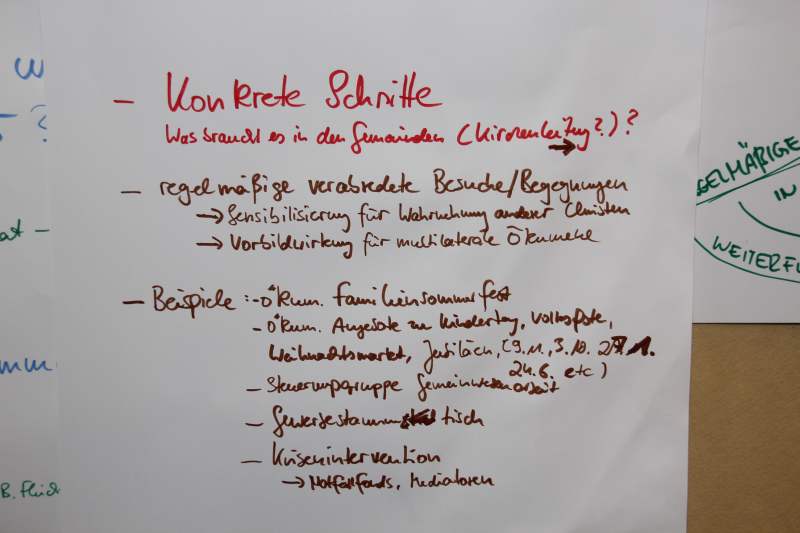 – Konkrete Schritte
Was braucht es in den Gemeinden (Kirchenleitung?)?
→
– regelmäßige verabredete Besuche/Begegnungen
→ Sensibilisierung für Wahrnehmung anderer Christen
→ Vorbildwirkung für multilaterale Ökumene
– Beispiele: - ökum. Familiensommerfest
- ökum. Angebote zu Kindertag, Volksfeste,
Weihnachtsmarkt, Jubiläen, (9.11., 3.10. 27.1.
24.6. etc)
- Steuerungsgruppe Gemeinwesenarbeit
- Gewerbestammtisch
- Krisenintervention
→ Notfallfonds, Mediatoren
W
?
at –
mm
B. Flücht
REGELMÄßIGE
IN
WEITERFÜ